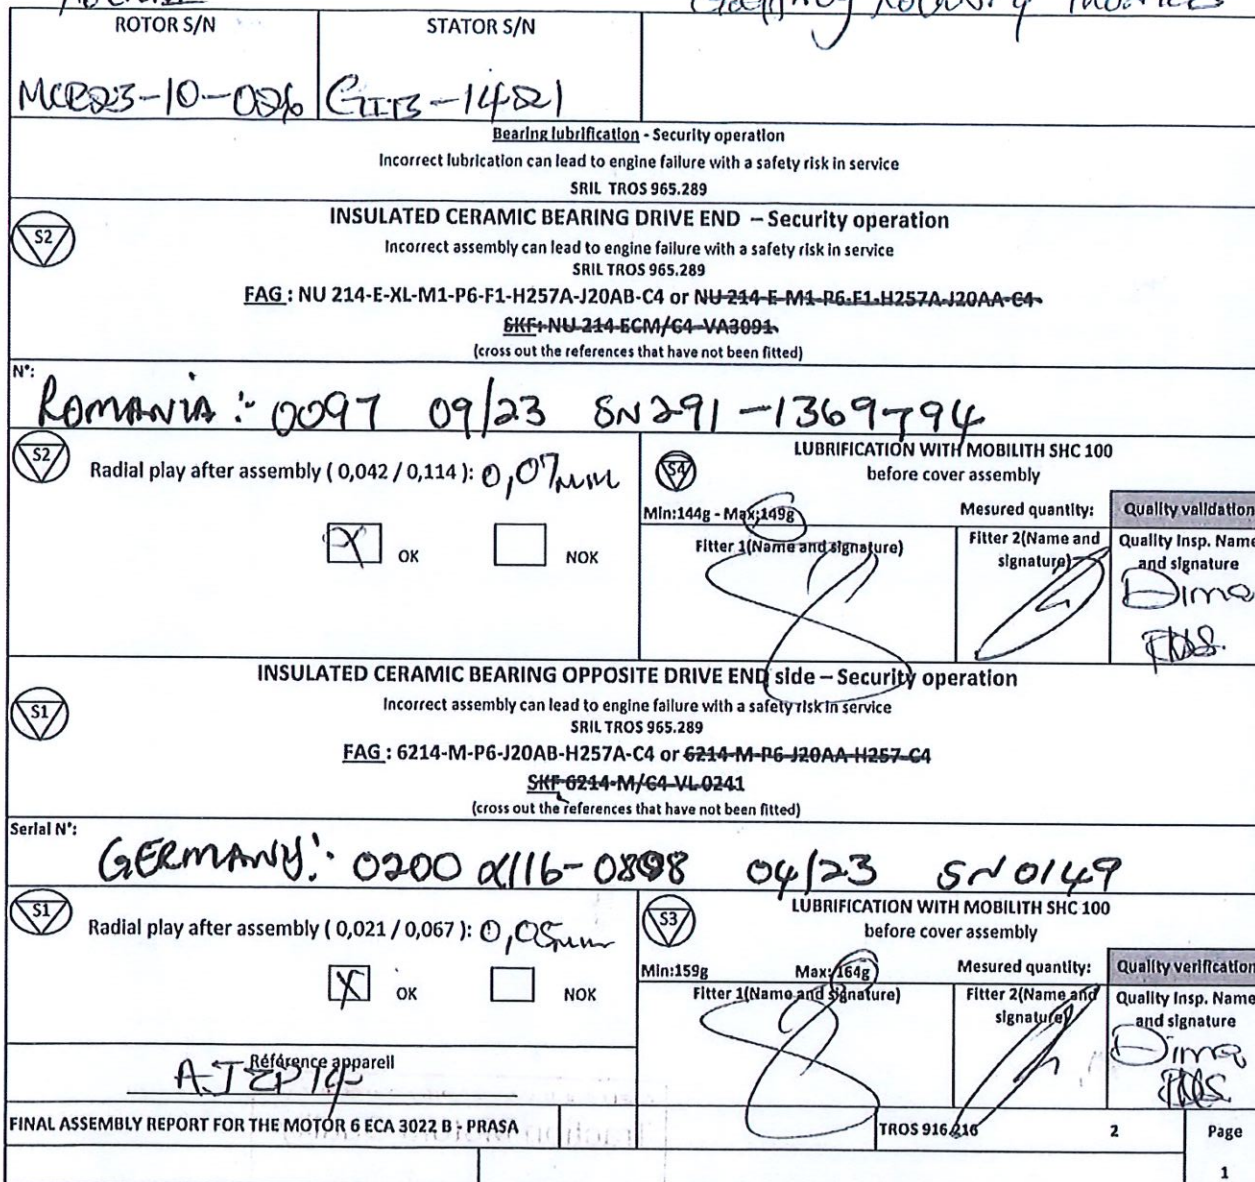 ROTOR S/N
STATOR S/N
GIIB-14821
Bearing lubrification - Security operation
Incorrect lubrication can lead to engine failure with a safety risk in service
SRIL TROS 965.289
S2
INSULATED CERAMIC BEARING DRIVE END – Security operation
Incorrect assembly can lead to engine failure with a safety risk in service
SRIL TROS 965.289
FAG : NU 214-E-XL-M1-P6-F1-H257A-J20AB-C4 or NU-214-E-M1-P6-F1-H257A-J20AA-C4
SKF: NU-214-ECM/C4-VA3091
(cross out the references that have not been fitted)
N°:
ROMANIA : 0097 09/23 SN 291-1369794
S2
Radial play after assembly ( 0,042 / 0,114 ): 0,07mm
X OK
NOK
S4
LUBRIFICATION WITH MOBILITH SHC 100
before cover assembly
Min:144g - Max:149g
Mesured quantity:
Quality validation
Fitter 1(Name and signature)
Fitter 2(Name and signature)
Quality Insp. Name and signature
Dima
INSULATED CERAMIC BEARING OPPOSITE DRIVE END side – Security operation
S1
Incorrect assembly can lead to engine failure with a safety risk in service
SRIL TROS 965.289
FAG : 6214-M-P6-J20AB-H257A-C4 or 6214-M-P6-J20AA-H257-C4
SKF 6214-M/C4-VL0241
(cross out the references that have not been fitted)
Serial N°:
GERMANY: 0200 04/23 SN 0149
S1
Radial play after assembly ( 0,021 / 0,067 ): 0,05mm
X OK
NOK
S3
LUBRIFICATION WITH MOBILITH SHC 100
before cover assembly
Min:159g
Max:164g
Mesured quantity:
Quality verification
Fitter 1(Name and signature)
Fitter 2(Name and signature)
Quality Insp. Name and signature
Dima
Référence appareil
FINAL ASSEMBLY REPORT FOR THE MOTOR 6 ECA 3022 B - PRASA
TROS 916.216
2
Page
1